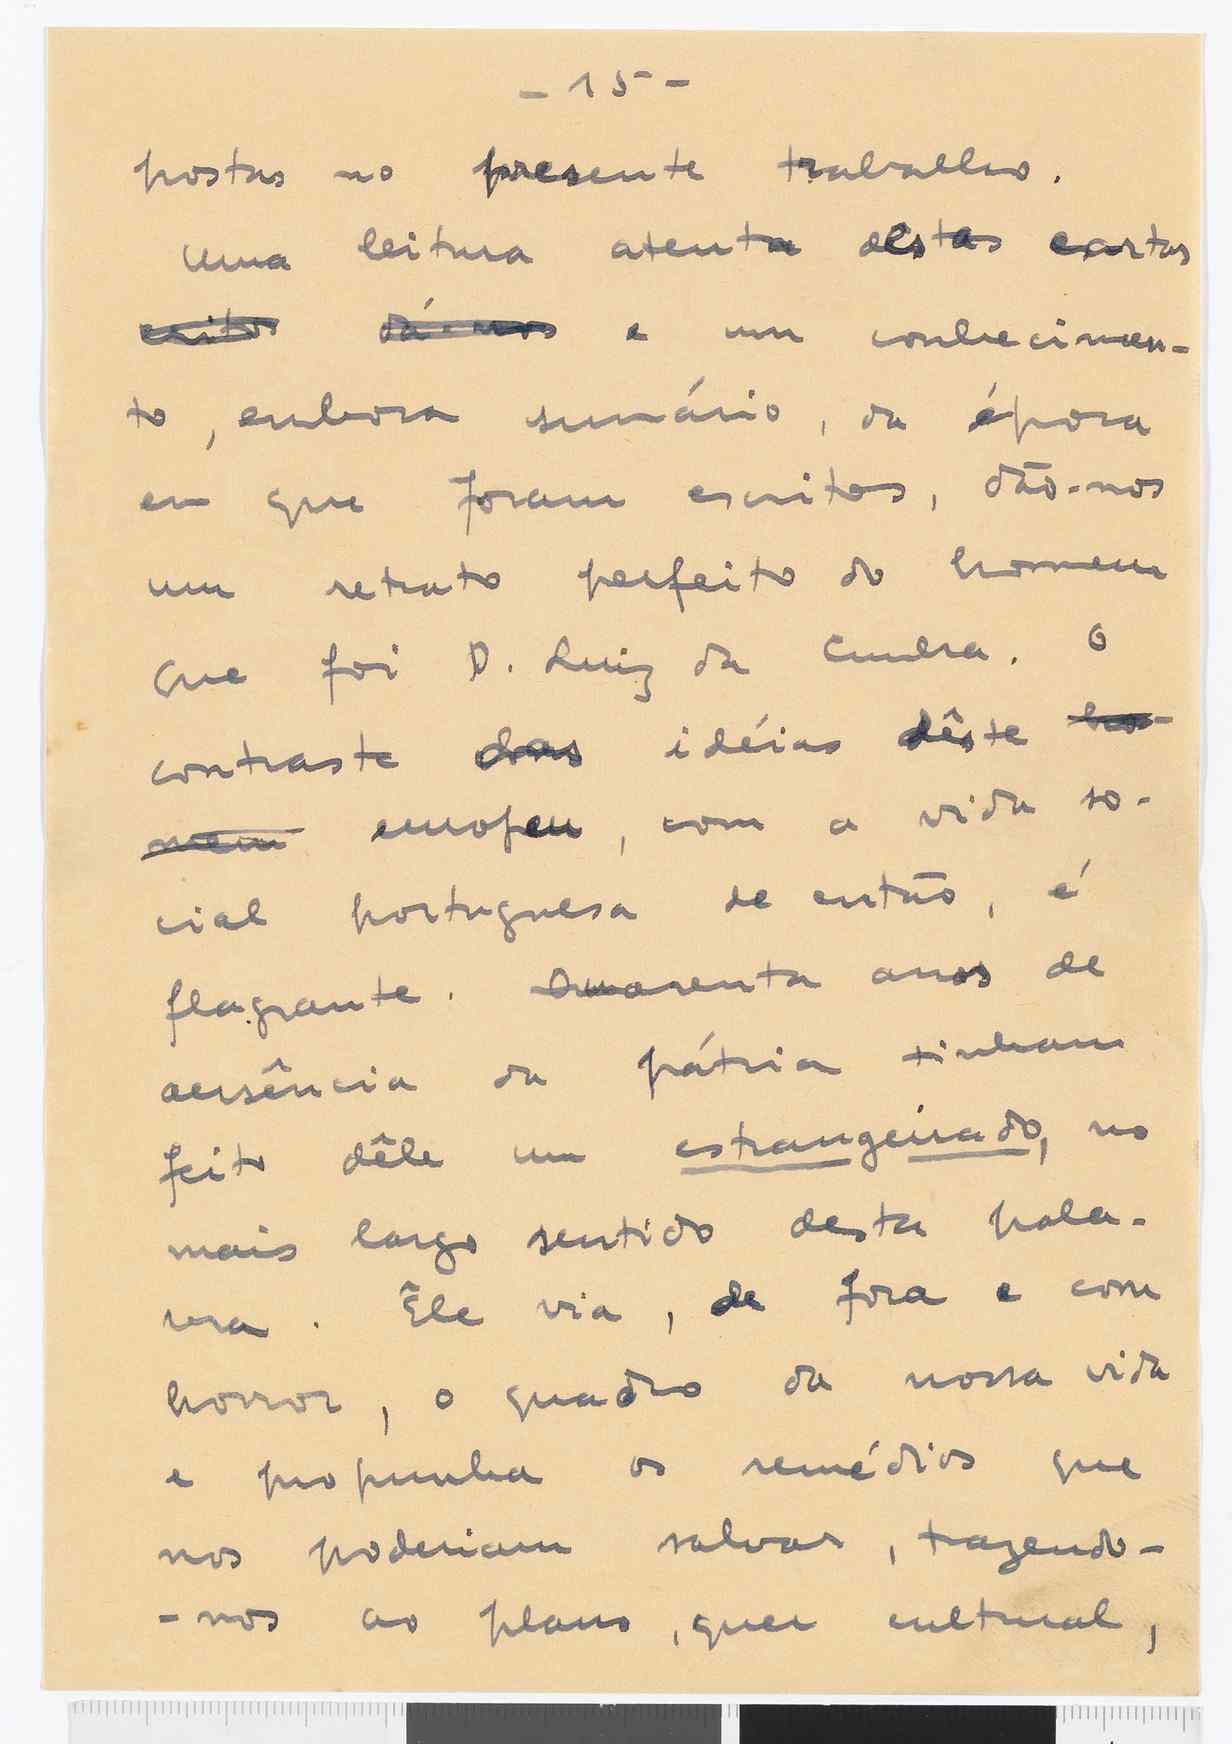 - 15 -
postas no presente trabalho.
Uma leitura atenta destas cartas
escritos dá-nos e um conhecimen-
to, embora sumário, da época
em que foram escritos, dão-nos
um retrato perfeito do homem
que foi D. Luiz da Cunha. O
contraste das idéias dêste ho-
mem europeu, com a vida so-
cial portuguesa de então, é
flagrante. Quarenta anos de
ausência da pátria tinham
feito dêle um estrangeirado, no
mais largo sentido desta pala-
vra. Êle via, de fora e com
horror, o quadro da nossa vida
e propunha os remédios que
nos poderiam salvar, trazendo-
-nos ao plano, quer cultural,